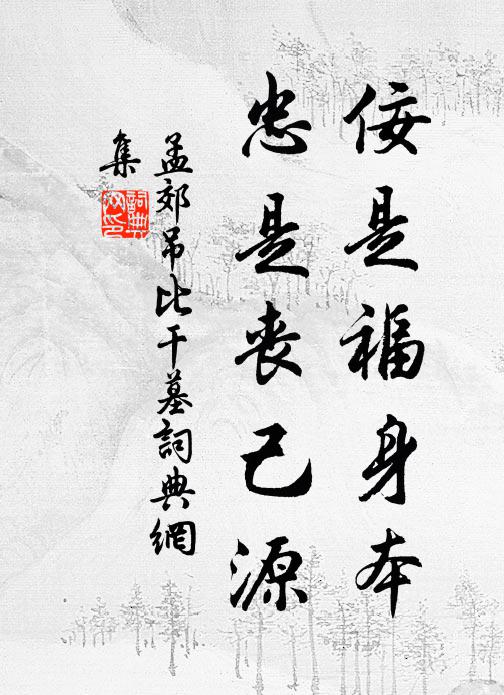 佞是福身本
忠是丧己源
孟郊吊比干墓詞典網
集
詞典
网印